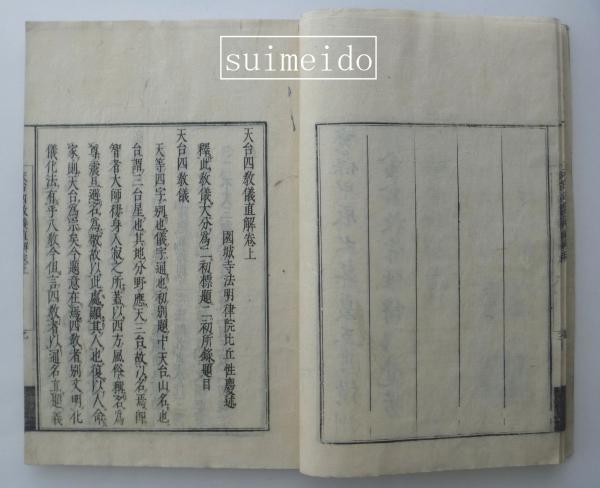 suimeido
天台四教儀直解卷上
園城寺法明律院比丘性慶述
釋此教儀大分為二初標題二初所錄題目
天台四教儀
天等四字別也儀字通也初別題中天台山名也
台謂三台星也其地分野應天三台故以名焉即
智者大師得身入寂之所蓋以西方風俗稱名為
尊震旦避名為敬故以此處顯其人也復以人命
家則天台為宗矣今題意在焉四教者別文明化
儀化法有乎八教今但言四教者以通名直題義